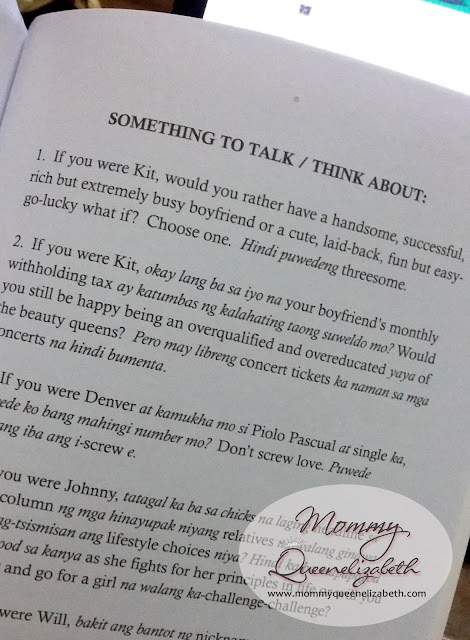 SOMETHING TO TALK / THINK ABOUT:
1. If you were Kit, would you rather have a handsome, successful,
rich but extremely busy boyfriend or a cute, laid-back, fun but easy-
go-lucky what if? Choose one. Hindi puwedeng threesome.
2. If you were Kit, okay lang ba sa iyo na your boyfriend's monthly
withholding tax ay katumbas ng kalahating taong suweldo mo? Would
you still be happy being an overqualified and overeducated yaya of
the beauty queens? Pero may libreng concert tickets ka naman sa mga
oncerts na hindi bumenta.
If you were Denver at kamukha mo si Piolo Pascual at single ka,
ede ko bang mahingi number mo? Don't screw love. Puwede
ang iba ang i-screw e.
you were Johnny, tatagal ka ba sa chicks na
column ng mga hinayupak niyang relatives
g-tsismisan ang lifestyle choices niya?
ood sa kanya as she fights for her principles in life
and go for a girl na walang ka-challenge-challenge?
were Will, bakit ang bantot ng
Mommy
Queenelizabeth
www.mommyqueenelizabeth.com